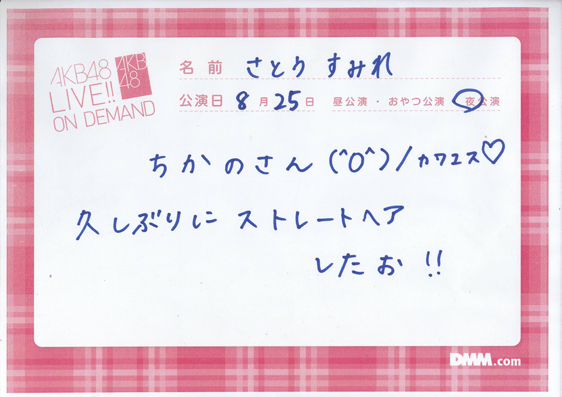 AKB48
LIVE!!
ON DEMAND
AKB
48
名前 さとう すみれ
公演日 8月25日 昼公演・おやつ公演 夜公演
ちかのさん(^O^)/カワユス♡
久しぶりに ストレートヘア
したお!!
DMM.com